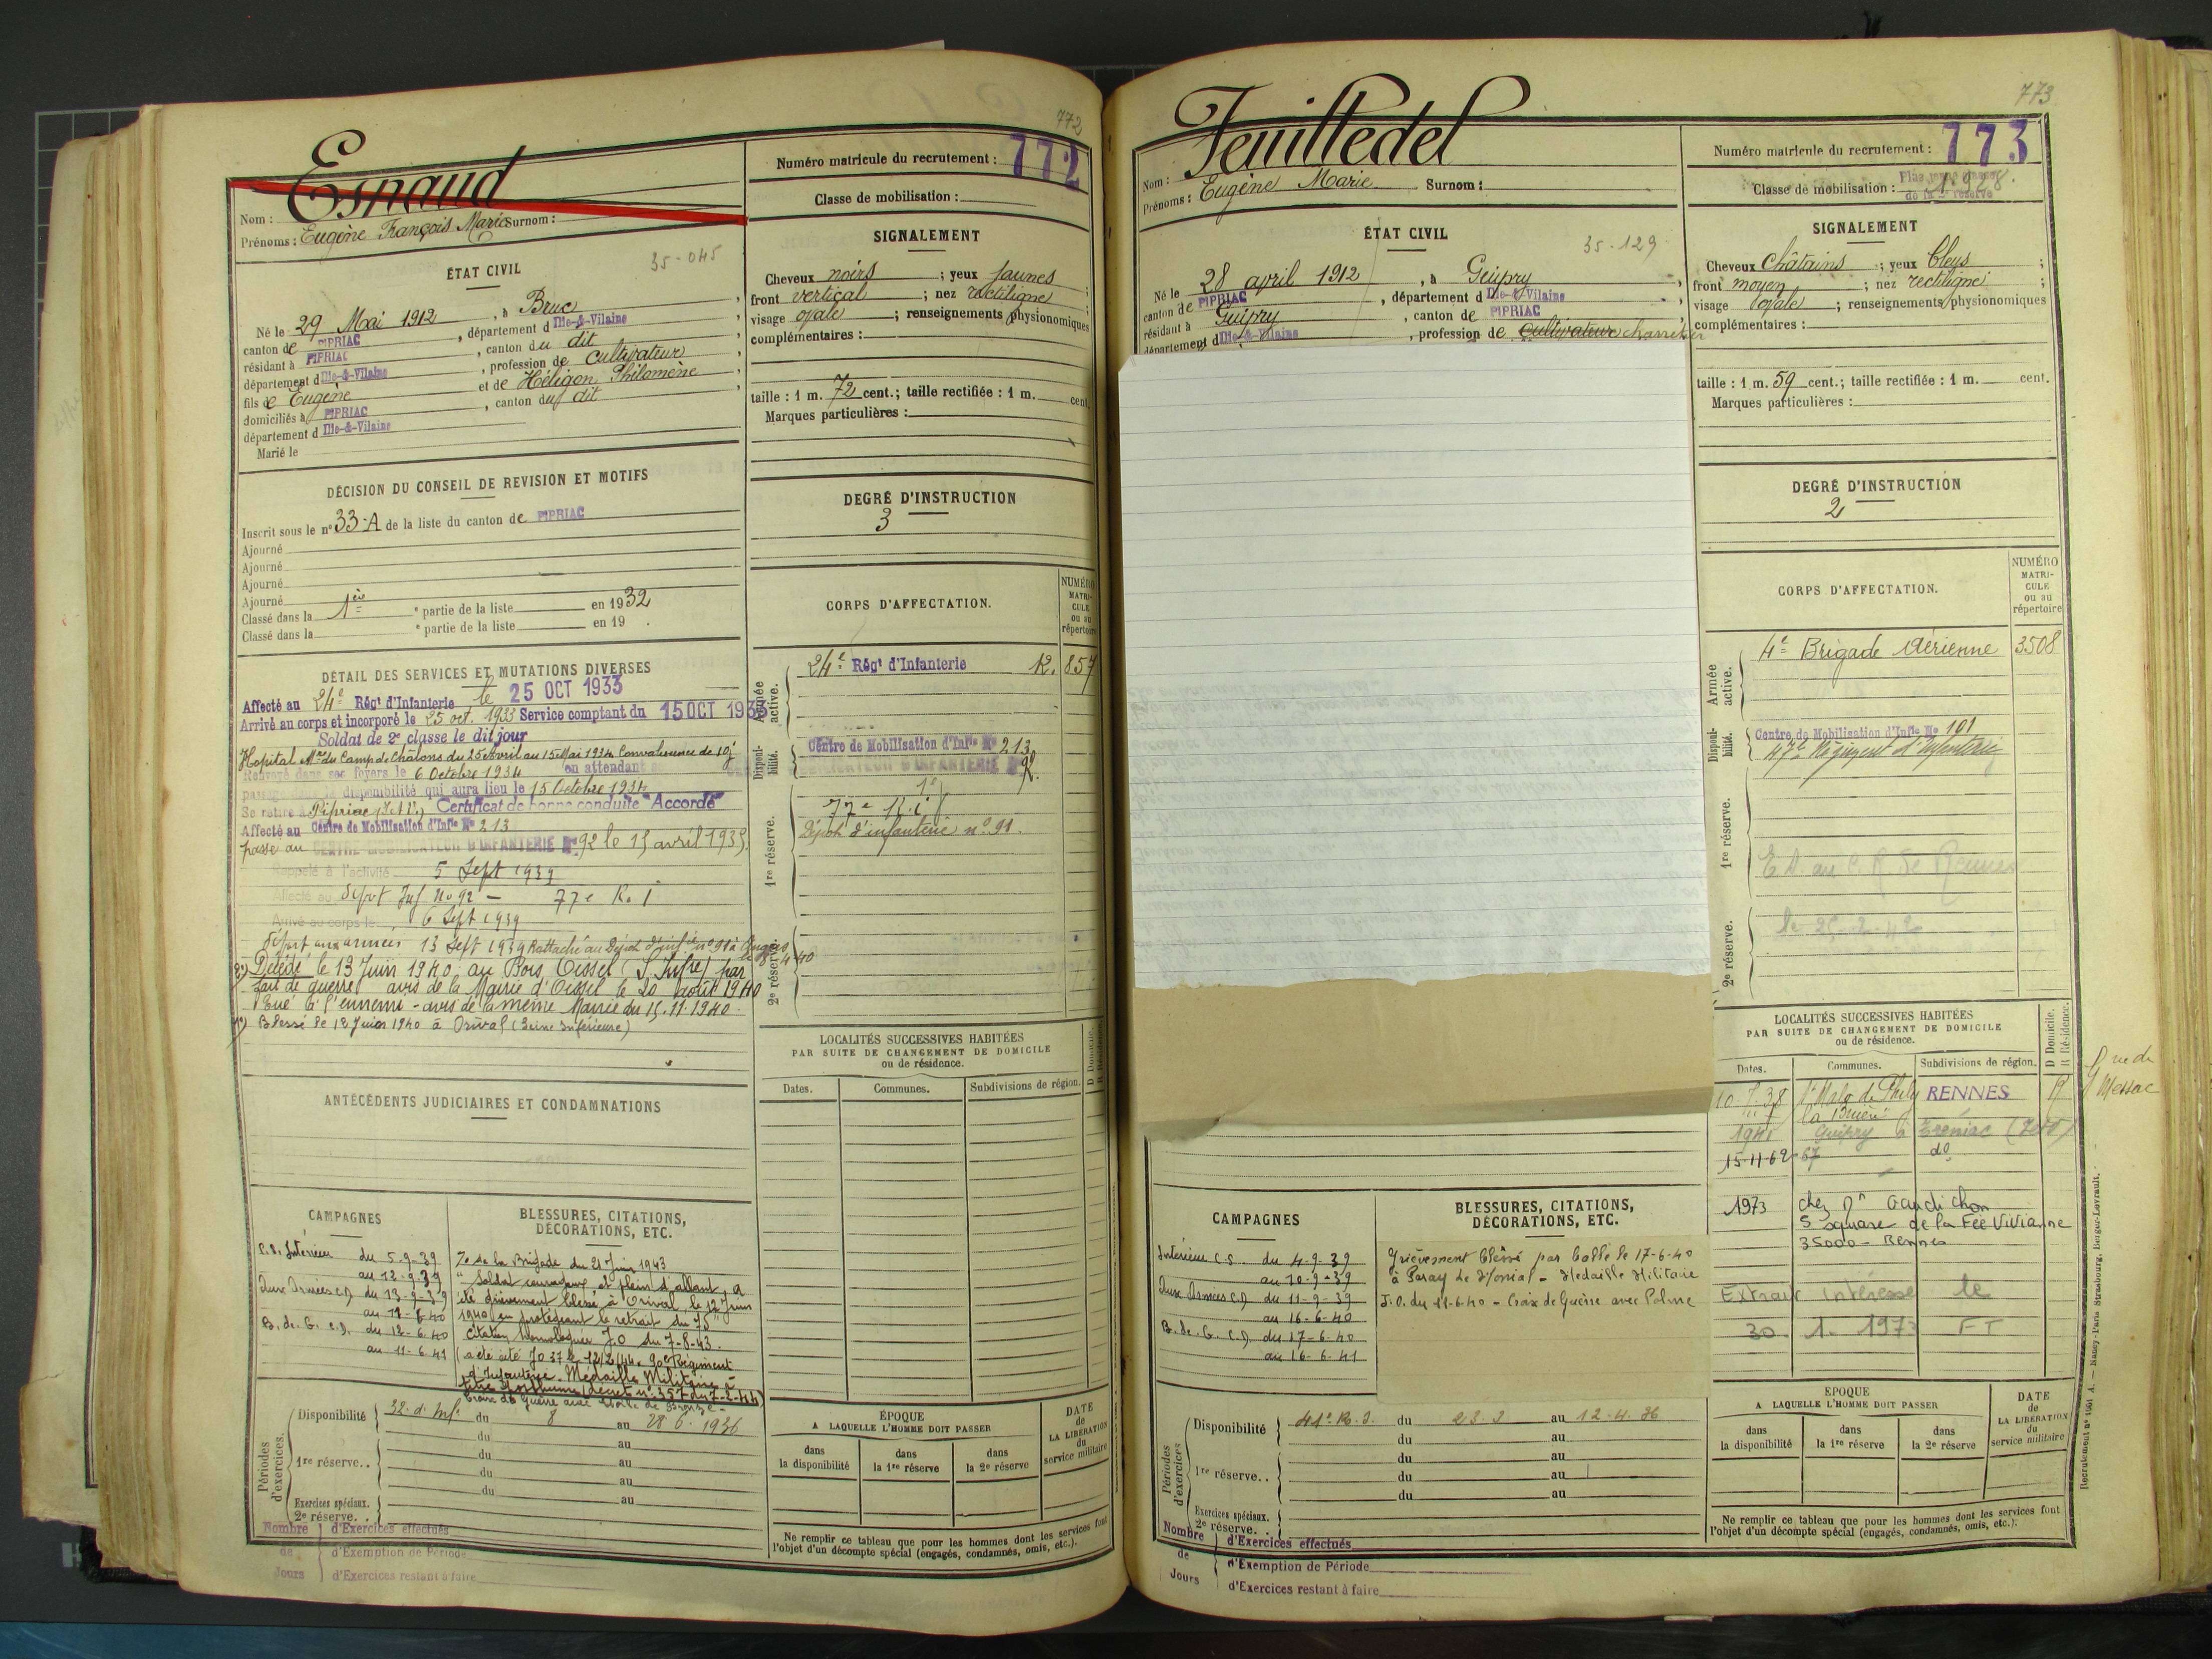 772
Esnaud
Numéro matricule du recrutement : 772
Classe de mobilisation :
Nom :
Prénoms : Eugène François Marie Surnom :
ÉTAT CIVIL
35-045
Né le 29 Mai 1912, à Bruc,
canton de PIPRIAC, département d Ille-&-Vilaine,
résidant à PIPRIAC, canton du dit,
département d Ille-&-Vilaine, profession de cultivateur
fils de Eugène et de Héligon Philomène,
domiciliés à PIPRIAC, canton du dit,
département d Ille-&-Vilaine
Marié le
SIGNALEMENT
Cheveux noirs ; yeux jaunes ;
front vertical ; nez rectiligne ;
visage ovale ; renseignements physionomiques
complémentaires :
taille : 1 m. 72 cent.; taille rectifiée : 1 m. cent.
Marques particulières :
DÉCISION DU CONSEIL DE REVISION ET MOTIFS
Inscrit sous le n° 33-A de la liste du canton de PIPRIAC
Ajourné
Ajourné
Ajourné
Ajourné
Classé dans la 1ère partie de la liste en 1932
Classé dans la e partie de la liste en 19 .
DEGRÉ D'INSTRUCTION
3
DÉTAIL DES SERVICES ET MUTATIONS DIVERSES
Affecté au 24e Régt d'Infanterie le 25 OCT 1933
Arrivé au corps et incorporé le 25 oct. 1933 Service comptant du 15 OCT 1933
Soldat de 2e classe le dit jour
Hopital Mre du Camp de Châlons du 25 Avril au 15 Mai 1934 Convalescence de 10j
Renvoyé dans ses foyers le 6 Octobre 1934 en attendant
passage dans la disponibilité qui aura lieu le 15 Octobre 1934
Se retire à Pipriac (I et V.) Certificat de bonne conduite "Accordé"
Affecté au Centre de Mobilisation d'Infie N° 213
passe au CENTRE MOBILISATEUR D'INFANTERIE N° 92 le 15 avril 1935.
Rappelé à l'activité 5 Sept 1939
Affecté au Dépot Inf No 92 - 77e R. I
Arrivé au corps le 6 Sept 1939
Départ aux armées 13 Sept 1939 Rattaché au Dépot d'infie n° 91 à Angers
2°) Décédé le 13 Juin 1940 au Bois Oissel (S. Infre) par
fait de guerre avis de la Mairie d'Oissel le 20 août 1940
Tué à l'ennemi - avis de la même Mairie du 15.11.1940.
1°) Blessé le 12 Juin 1940 à Orival (Seine Inférieure)
CORPS D'AFFECTATION.
NUMÉRO MATRICULE ou au répertoire
Armée active.
24e Régt d'Infanterie 12. 857
Disponibilité.
Centre de Mobilisation d'Infie N° 213
1re réserve.
77e R.i
Dépot d'infanterie n° 91.
2e réserve.
ANTÉCÉDENTS JUDICIAIRES ET CONDAMNATIONS
LOCALITÉS SUCCESSIVES HABITÉES
PAR SUITE DE CHANGEMENT DE DOMICILE
ou de résidence.
D Domicile.
R Résidence.
Dates. Communes. Subdivisions de région.
CAMPAGNES
C.S. Intérieur du 5-9-39
au 12-9-39
Aux Armées C.D du 13-9-39
au 12-6-40
B. de G. C.D. du 12-6-40
au 11-6-41
BLESSURES, CITATIONS,
DÉCORATIONS, ETC.
de la Brigade du 21 Juin 1943
"Soldat courageux et plein d'allant, a
été grièvement blessé à Orival le 12 Juin
1940 en protégeant le retrait du 75"
Citation homologuée J.O du 7-8-43.
d'Infanterie. Médaille Militaire à
titre Posthume (décret n° 357 du 7-2-44)
Croix de Guerre avec étoile de Bronze -
Périodes d'exercices.
Disponibilité 32. d. Inf. du 8 au 28 6. 1936
du au
1re réserve.. du au
du au
du au
Exercices spéciaux.
2e réserve. .
Nombre de Jours
d'Exercices effectués
d'Exemption de Période
d'Exercices restant à faire
ÉPOQUE
A LAQUELLE L'HOMME DOIT PASSER
dans la disponibilité
dans la 1re réserve
dans la 2e réserve
DATE de LA LIBÉRATION du service militaire
Ne remplir ce tableau que pour les hommes dont les services font
l'objet d'un décompte spécial (engagés, condamnés, omis, etc.).
773
Feuilledel
Numéro matricule du recrutement : 773
Classe de mobilisation : 1928.
Plus jeune classe
de la 2e réserve
Nom :
Prénoms : Eugène Marie Surnom :
ÉTAT CIVIL
35-129
Né le 28 avril 1912, à Guipry,
canton de PIPRIAC, département d Ille-&-Vilaine,
résidant à Guipry, canton de PIPRIAC,
département d Ille-&-Vilaine, profession de cultivateur charretier
SIGNALEMENT
Cheveux châtains ; yeux bleus ;
front moyen ; nez rectiligne ;
visage ovale ; renseignements physionomiques
complémentaires :
taille : 1 m. 59 cent.; taille rectifiée : 1 m. cent.
Marques particulières :
DEGRÉ D'INSTRUCTION
2
CORPS D'AFFECTATION.
NUMÉRO MATRICULE ou au répertoire
Armée active.
4e Brigade Aérienne 3508
Disponibilité.
Centre de Mobilisation d'Infie N° 101
47e Régiment d'Infanterie
1re réserve.
2e réserve.
le 25-2-42
LOCALITÉS SUCCESSIVES HABITÉES
PAR SUITE DE CHANGEMENT DE DOMICILE
ou de résidence.
D Domicile.
R Résidence.
Dates. Communes. Subdivisions de région.
St Malo de Phily RENNES R
rue de Messac
1941 Guipry
15-11-62 67 do
1973 chez Mr Gaudichon
5 square de la Fée Vivianne
35000 - Rennes
Extrait intéressé le
30. 1. 1973 FT
CAMPAGNES
Intérieur C.S. du 4-9-39
au 10-9-39
Aux Armées C.D du 11-9-39
au 16-6-40
B. de G. C.D du 17-6-40
au 16-6-41
BLESSURES, CITATIONS,
DÉCORATIONS, ETC.
Grièvement blessé par balle le 17-6-40
à Paray le Monial - Médaille Militaire
J.O. du 11-6-40 - Croix de Guerre avec Palme
Périodes d'exercices
Disponibilité 41e R.I. du 23.3 au 12.4.36
du au
1re réserve.. du au
du au
du au
Exercices spéciaux.
2e réserve. .
Nombre de Jours
d'Exercices effectués
d'Exemption de Période
d'Exercices restant à faire
ÉPOQUE
A LAQUELLE L'HOMME DOIT PASSER
dans la disponibilité
dans la 1re réserve
dans la 2e réserve
DATE de LA LIBÉRATION du service militaire
Ne remplir ce tableau que pour les hommes dont les services font
l'objet d'un décompte spécial (engagés, condamnés, omis, etc.).
Recrutement n° 1661 A. — Nancy-Paris-Strasbourg, Berger-Levrault.